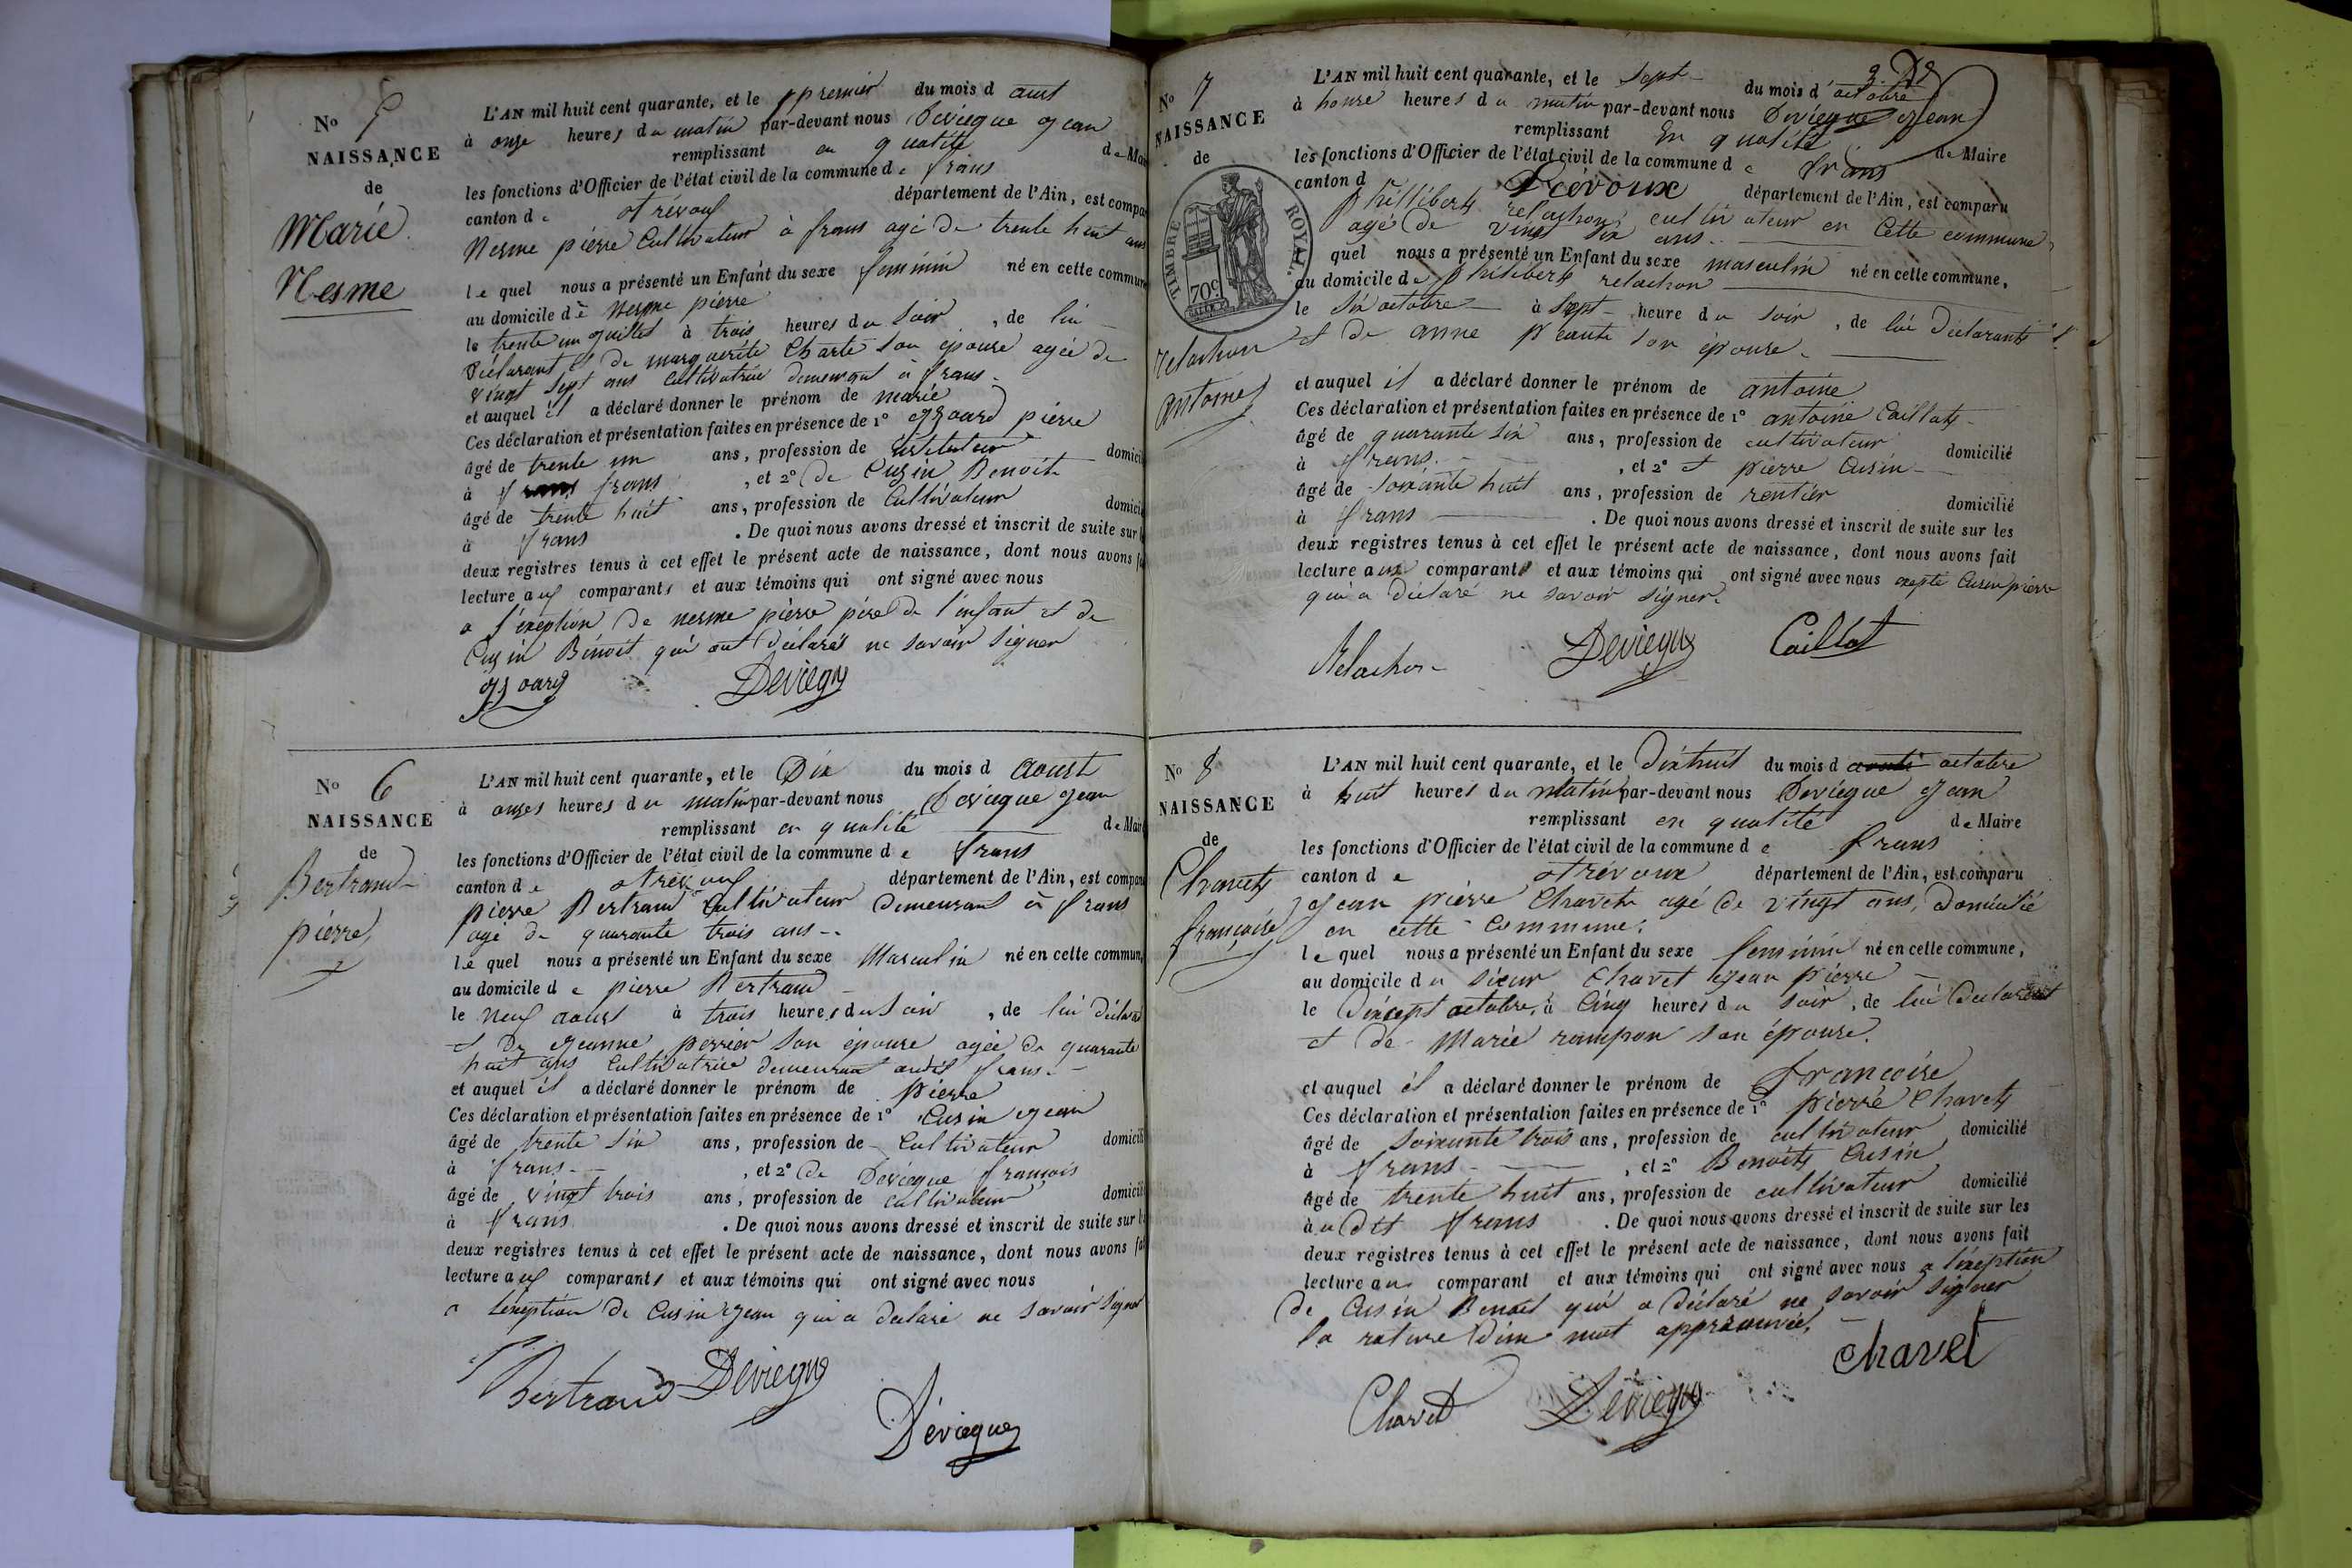 No 5
NAISSANCE
de
Marie
Nesme
L'AN mil huit cent quarante, et le premier du mois d aust
à onze heures du matin par-devant nous Deviegue jean
remplissant en qualité de Mai
les fonctions d'Officier de l'état civil de la commune de frans
canton de trévouf département de l'Ain, est compa
Nesme pierre Cultivateur à frans agé de trente huit ans
le quel nous a présenté un Enfant du sexe feminin né en cette commune
au domicile de Nesme pierre
le trente un juillet à trois heures du soir, de lui
déclarant et de marguerite Charte son épouse agée de
vingt sept ans cultivatrice demeurant à frans.
et auquel il a déclaré donner le prénom de marie
Ces déclaration et présentation faites en présence de 1° jzoard pierre
âgé de trente un ans, profession de instituteur domici
à frans frans, et 2° de Cusin Benoit
âgé de trente huit ans, profession de Cultivateur domici
à frans. De quoi nous avons dressé et inscrit de suite sur l
deux registres tenus à cet effet le présent acte de naissance, dont nous avons fa
lecture auf comparants et aux témoins qui ont signé avec nous
a l'exeption de nesme pierre pere de l'infant et de
Cusin Bénoit qui ont déclarés ne savoir signer
jzoard Deviegue
No 6
NAISSANCE
de
Bertrand
pierre
L'AN mil huit cent quarante, et le Dix du mois d aoust
à onzes heures du matin par-devant nous Deviegue jean
remplissant en qualité de Mair
les fonctions d'Officier de l'état civil de la commune de frans
canton de trevouf département de l'Ain, est compar
pierre Bertrand Cultivateur demeurant à frans
agé de quarante trois ans--
le quel nous a présenté un Enfant du sexe Masculin né en cette commun
au domicile de pierre Bertrand
le neuf aoust à trois heures du soir, de lui déclar
et de jeanne perrier son épouse agée de quarante
huit ans Cultivatrice demeurant audit frans.-
et auquel il a déclaré donner le prénom de pierre
Ces déclaration et présentation faites en présence de 1° Cusin jean
âgé de trente six ans, profession de Cultivateur domicili
à frans--, et 2° de Deviegue francois
âgé de vingt trois ans, profession de cultivateur domicili
à frans. De quoi nous avons dressé et inscrit de suite sur l
deux registres tenus à cet effet le présent acte de naissance, dont nous avons fai
lecture auf comparants et aux témoins qui ont signé avec nous
a l'exeption de Cusin jean qui a declaré ne savoir signer
Bertrand Deviegue
Déviegue
3. De
No 7
NAISSANCE
de
TIMBRE ROYAL.
70c
relachon
antoine
L'AN mil huit cent quarante, et le sept du mois d'octobre
à honze heures du matin par-devant nous Deviegue jean
remplissant En qualité de Maire
les fonctions d'Officier de l'état civil de la commune de frans
canton d Trévoux département de l'Ain, est comparu
phillibert relachon cultivateur en Cette commune
agé de vingt six ans.
quel nous a présenté un Enfant du sexe masculin né en cette commune,
au domicile de philibert relachon
le six octobre à sept heure du soir, de lui déclarant
et de anne peaute son épouse.
et auquel il a déclaré donner le prénom de antoine
Ces déclaration et présentation faites en présence de 1° antoine Caillat
âgé de quarante six ans, profession de cultivateur domicilié
à frans., et 2° et pierre Cusin
âgé de soixante huit ans, profession de rentier domicilié
à frans. De quoi nous avons dressé et inscrit de suite sur les
deux registres tenus à cet effet le présent acte de naissance, dont nous avons fait
lecture aux comparants et aux témoins qui ont signé avec nous exepté Cusin pierre
qui a déclaré ne savoir signer.
Relachon Deviegue Caillat
No 8
NAISSANCE
de
Chavet
françoise
L'AN mil huit cent quarante, et le dixhuit du mois d octobre
à huit heures du matin par-devant nous Deviegue jean
remplissant en qualité de Maire
les fonctions d'Officier de l'état civil de la commune de frans
canton de trévoux département de l'Ain, est comparu
jean pierre Chavet agé de vingt ans, domicilié
en cette commune.
le quel nous a présenté un Enfant du sexe feminin né en cette commune,
au domicile du sieur Chavet jean pierre
le dixsept octobre, à Cinq heures du soir, de lui déclarant
et de Marie rampon son épouse.
et auquel il a déclaré donner le prénom de francoise
Ces déclaration et présentation faites en présence de 1° pierre Chavet
âgé de soixante trois ans, profession de cultivateur domicilié
à frans, et 2° Benoit Cusin
âgé de trente huit ans, profession de cultivateur domicilié
à u dit frans. De quoi nous avons dressé et inscrit de suite sur les
deux registres tenus à cet effet le présent acte de naissance, dont nous avons fait
lecture au comparant et aux témoins qui ont signé avec nous a l'exeption
de Cusin Benoit qui a déclaré ne savoir signer
la rature d'un mot approuvée.
Chavet Deviegue chavet